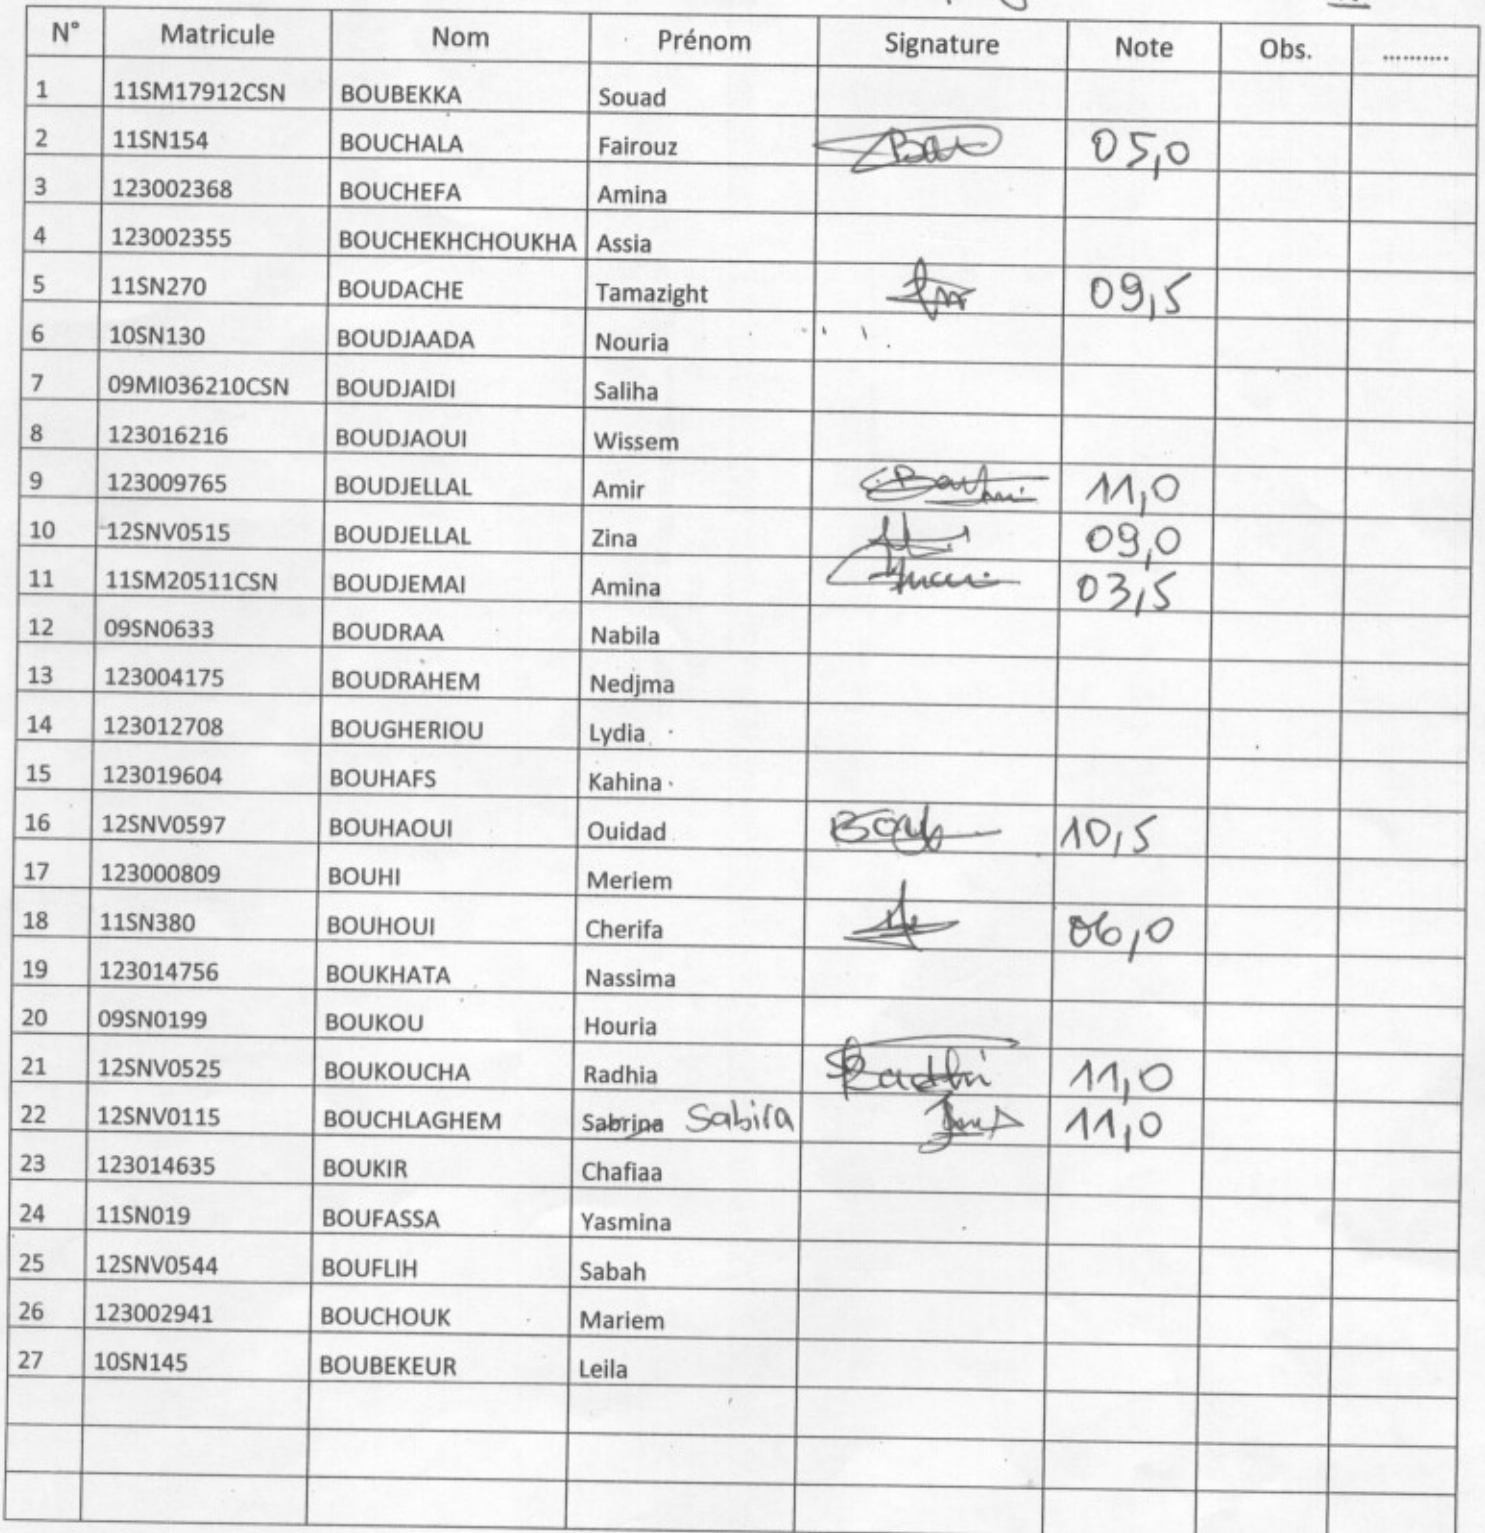 N° Matricule Nom Prénom Signature Note Obs. ..........
1 11SM17912CSN BOUBEKKA Souad
2 11SN154 BOUCHALA Fairouz 05,0
3 123002368 BOUCHEFA Amina
4 123002355 BOUCHEKHCHOUKHA Assia
5 11SN270 BOUDACHE Tamazight 09,5
6 10SN130 BOUDJAADA Nouria
7 09MI036210CSN BOUDJAIDI Saliha
8 123016216 BOUDJAOUI Wissem
9 123009765 BOUDJELLAL Amir 11,0
10 12SNV0515 BOUDJELLAL Zina 09,0
11 11SM20511CSN BOUDJEMAI Amina 03,5
12 09SN0633 BOUDRAA Nabila
13 123004175 BOUDRAHEM Nedjma
14 123012708 BOUGHERIOU Lydia
15 123019604 BOUHAFS Kahina
16 12SNV0597 BOUHAOUI Ouidad 10,5
17 123000809 BOUHI Meriem
18 11SN380 BOUHOUI Cherifa 06,0
19 123014756 BOUKHATA Nassima
20 09SN0199 BOUKOU Houria
21 12SNV0525 BOUKOUCHA Radhia 11,0
22 12SNV0115 BOUCHLAGHEM Sabrina Sabira 11,0
23 123014635 BOUKIR Chafiaa
24 11SN019 BOUFASSA Yasmina
25 12SNV0544 BOUFLIH Sabah
26 123002941 BOUCHOUK Mariem
27 10SN145 BOUBEKEUR Leila